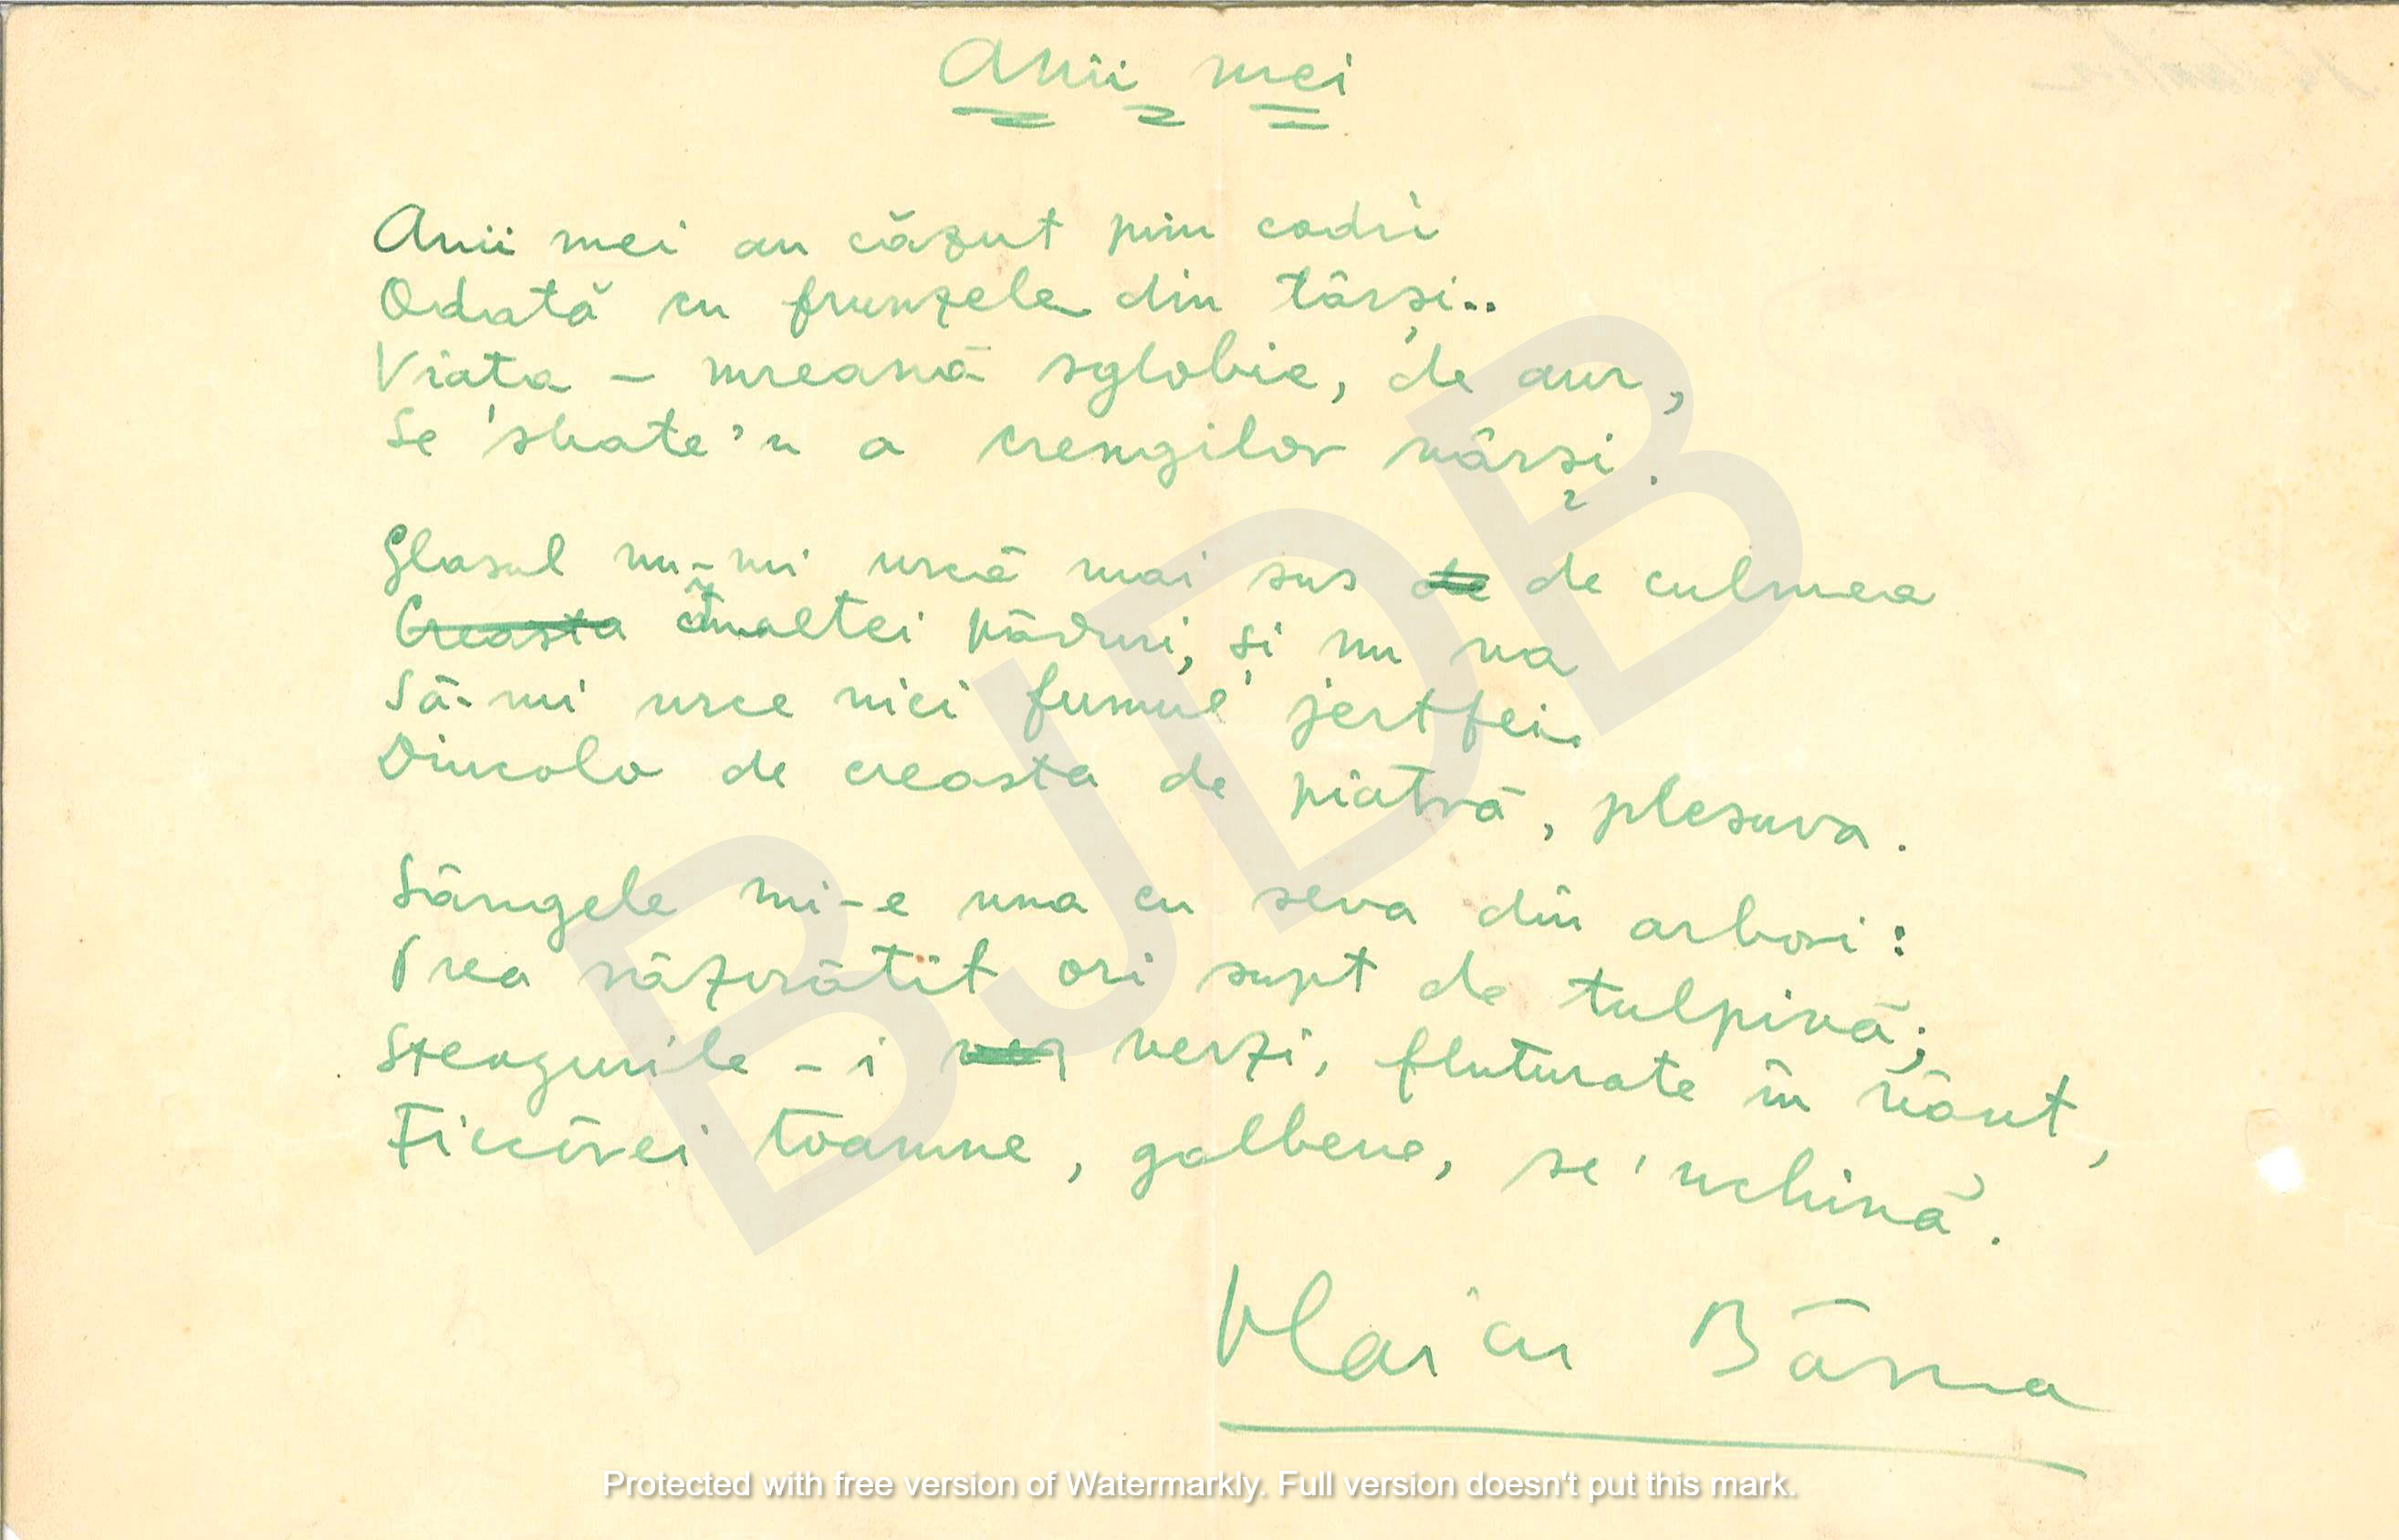 Anii mei
Anii mei au căzut prin codri
Odată cu frunzele din târși..
Viața – mreană sglobie, de aur,
Se sbate'n a crengilor vârși.
Glasul nu-mi urcă mai sus de de culmea
Creasta înaltei păduri, și nu va
Să-mi urce nici fumul jertfei
Dincolo de creasta de piatră, pleșuva.
Sângele mi-e una cu seva din arbori:
Prea răzvrătit ori supt de tulpină;
Steagurile-i verzi, fluturate în vânt,
Fiecărei toamne, galbene, se'nchină.
Vlaicu Bârna
BJDB
Protected with free version of Watermarkly. Full version doesn't put this mark.